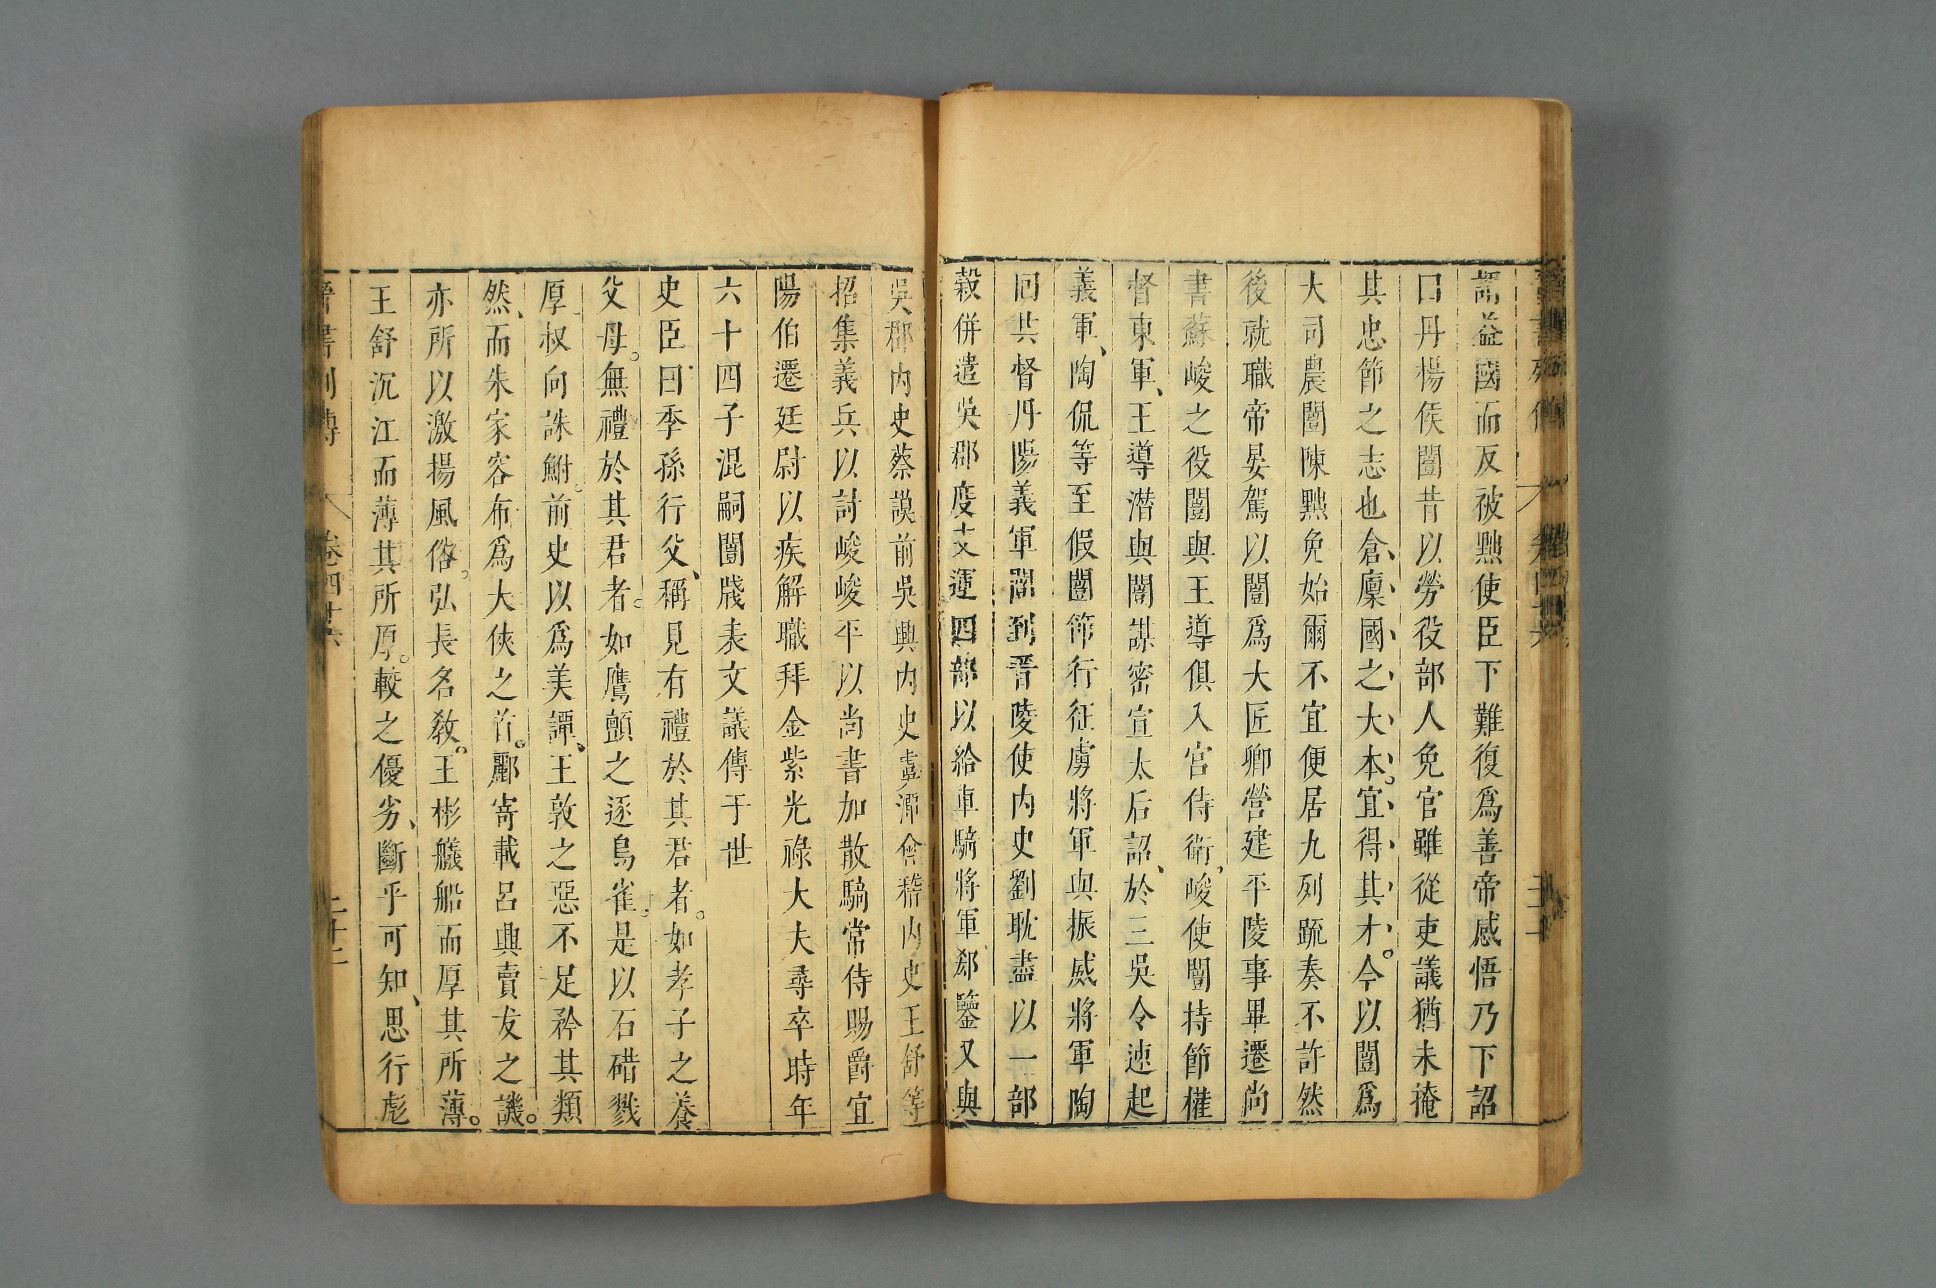 謂益國而反被黜使臣下難復爲善帝感悟乃下詔
曰丹楊侯闓昔以勞役部人免官雖從吏議猶未掩
其忠節之志也倉廩國之大本宜得其才今以闓爲
大司農闓陳黜免始爾不宜便居九列疏奏不許然
後就職帝晏駕以闓爲大匠卿營建平陵事畢遷尚
書蘇峻之役闓與王導俱入宮侍衛峻使闓持節權
督東軍王導潛與闓謀密宣太后詔於三吳令速起
義軍陶侃等至假闓節行征虜將軍與振威將軍陶
回共督丹陽義軍闓到晋陵使內史劉耽盡以一部
穀併遣吳郡度支運四部以給車騎將軍郄鑒又與
吳郡內史蔡謨前吳興內史虞潭會稽內史王舒等
招集義兵以討峻峻平以尚書加散騎常侍賜爵宜
陽伯遷廷尉以疾解職拜金紫光祿大夫尋卒時年
六十四子混嗣闓牋表文議傳于世
史臣曰季孫行父稱見有禮於其君者如孝子之養
父母無禮於其君者如鷹鸇之逐鳥雀是以石碏戮
厚叔向誅鮒前史以爲美譚王敦之惡不足矜其類
然而朱家容布爲大俠之首酈寄載呂興賣友之譏
亦所以激揚風俗弘長名敎王彬艤船而厚其所薄
王舒沉江而薄其所厚較之優劣斷乎可知思行彪
晉書列傳 卷四十六 二十二